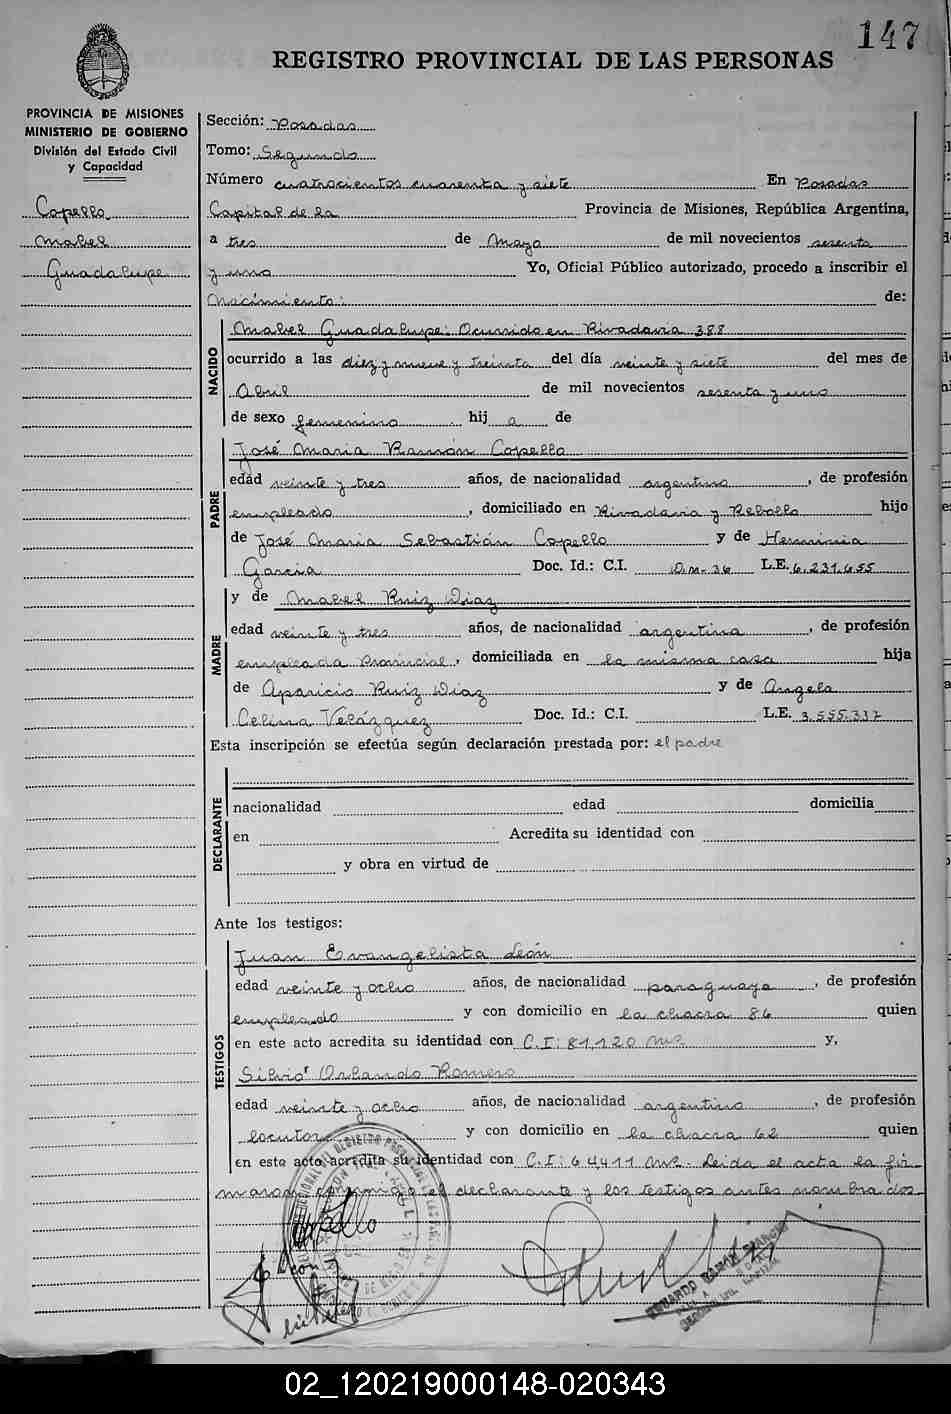 147
REGISTRO PROVINCIAL DE LAS PERSONAS
PROVINCIA DE MISIONES
MINISTERIO DE GOBIERNO
División del Estado Civil
y Capacidad
Copello
Mabel
Guadalupe
Sección: Posadas
Tomo: Segundo
Número cuatrocientos cuarenta y siete En Posadas
Capital de la Provincia de Misiones, República Argentina,
a tres de Mayo de mil novecientos sesenta
y uno Yo, Oficial Público autorizado, procedo a inscribir el
Nacimiento: de:
NACIDO
Mabel Guadalupe: Ocurrido en Rivadavia 388
ocurrido a las diez y nueve y treinta del día veinte y siete del mes de
Abril de mil novecientos sesenta y uno
de sexo femenino hij a de
PADRE
José Maria Ramón Copello
edad veinte y tres años, de nacionalidad argentino, de profesión
empleado, domiciliado en Rivadavia y Rebollo hijo
de José Maria Sebastián Copello y de Herminia
Garcia Doc. Id.: C.I. D.M. 36 L.E. 6.231.655
MADRE
y de Mabel Ruiz Diaz
edad veinte y tres años, de nacionalidad argentina, de profesión
empleada Provincial, domiciliada en la misma casa hija
de Aparicio Ruiz Diaz y de Angela
Celina Velázquez Doc. Id.: C.I. L.E. 3.555.337
Esta inscripción se efectúa según declaración prestada por: el padre
DECLARANTE
nacionalidad edad domicilia
en Acredita su identidad con
y obra en virtud de
Ante los testigos:
TESTIGOS
Juan Evangelista León
edad veinte y ocho años, de nacionalidad paraguaya, de profesión
empleado y con domicilio en la chacra 86 quien
en este acto acredita su identidad con C.I: 81.120 Mnes y,
Silvio Orlando Romero
edad veinte y ocho años, de nacionalidad argentino, de profesión
locutor y con domicilio en la chacra 62 quien
en este acto acredita su identidad con C.I: 64411 Mnes. Leida el acta la fir-
maron conmigo el declarante y los testigos antes nombrados
Copello
León
02_120219000148-020343